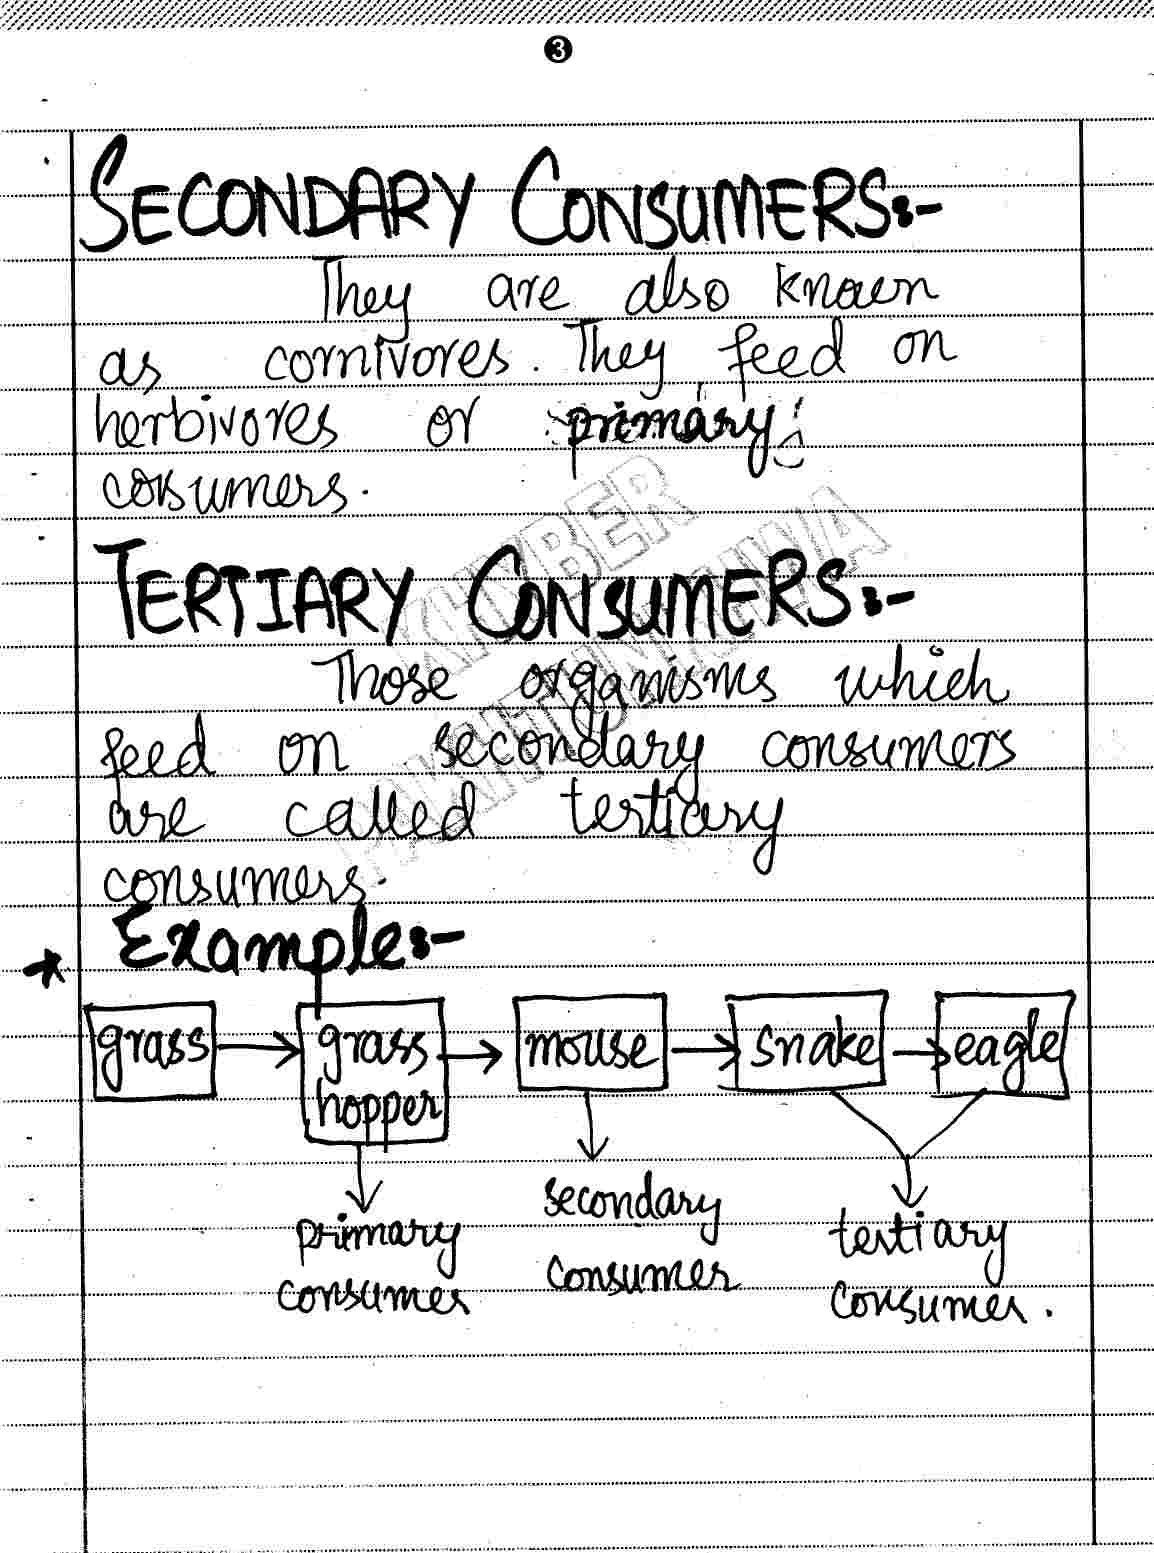 3
SECONDARY CONSUMERS:-
They are also known
as cornivores. They feed on
herbivores or primary
cosumers.
KHYBER
PAKHTUNKHWA
TERTIARY CONSUMERS:-
Those organisms which
feed on secondary consumers
are called tertiary
consumers.
* Example:-
grass → grass hopper → mouse → snake → eagle
primary consumer
secondary consumer
tertiary consumer.